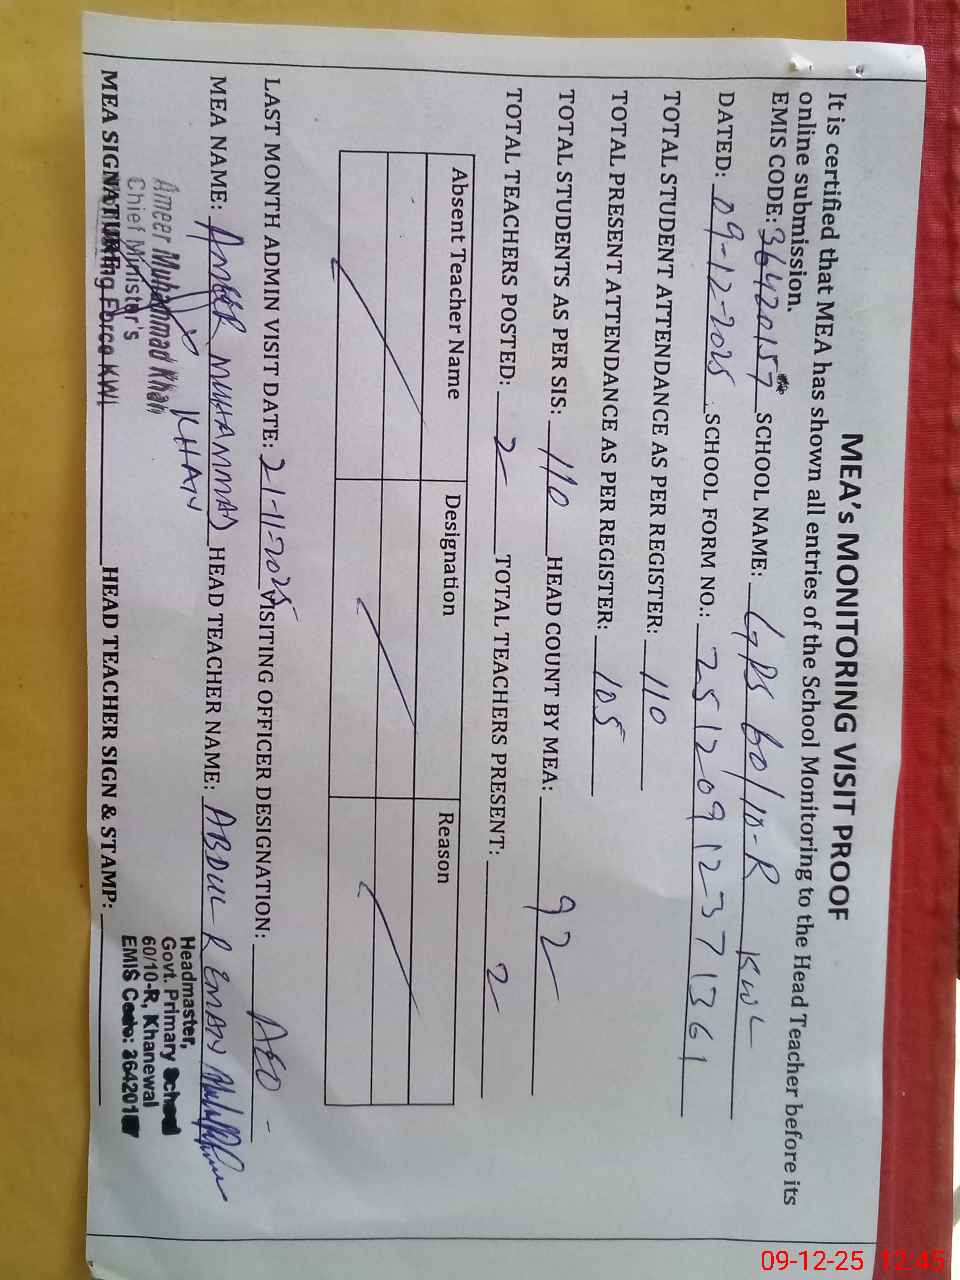 MEA's MONITORING VISIT PROOF
It is certified that MEA has shown all entries of the School Monitoring to the Head Teacher before its
online submission.
EMIS CODE: 36420157 SCHOOL NAME: GPS 60/10-R KWL
DATED: 09-12-2025 SCHOOL FORM NO.: 25120912371361
TOTAL STUDENT ATTENDANCE AS PER REGISTER: 110
TOTAL PRESENT ATTENDANCE AS PER REGISTER: 105
TOTAL STUDENTS AS PER SIS: 110 HEAD COUNT BY MEA: 92
TOTAL TEACHERS POSTED: 2 TOTAL TEACHERS PRESENT: 2
Absent Teacher Name Designation Reason
LAST MONTH ADMIN VISIT DATE: 21-11-2025 VISITING OFFICER DESIGNATION: AEO-
MEA NAME: AMEER MUHAMMAD KHAN HEAD TEACHER NAME: ABDUL REMAN
Ameer Muhammad Khan
Chief Minister's
Monitoring Force KWL
MEA SIGNATURE: HEAD TEACHER SIGN & STAMP:
Headmaster,
Govt. Primary School
60/10-R, Khanewal
EMIS Code: 36420157
09-12-25 12:45